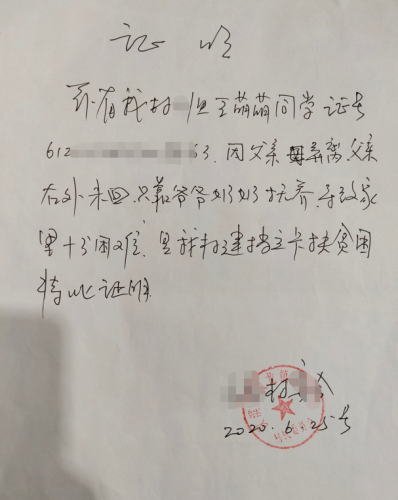 证明
系有我村 组王萌萌同学证号
612 63. 因父亲母弃离.父亲
在外未回.只靠爷爷奶奶扶养.导致家
里十分困难.是我村建档立卡扶贫困
特此证明.
村
2020.6.25号